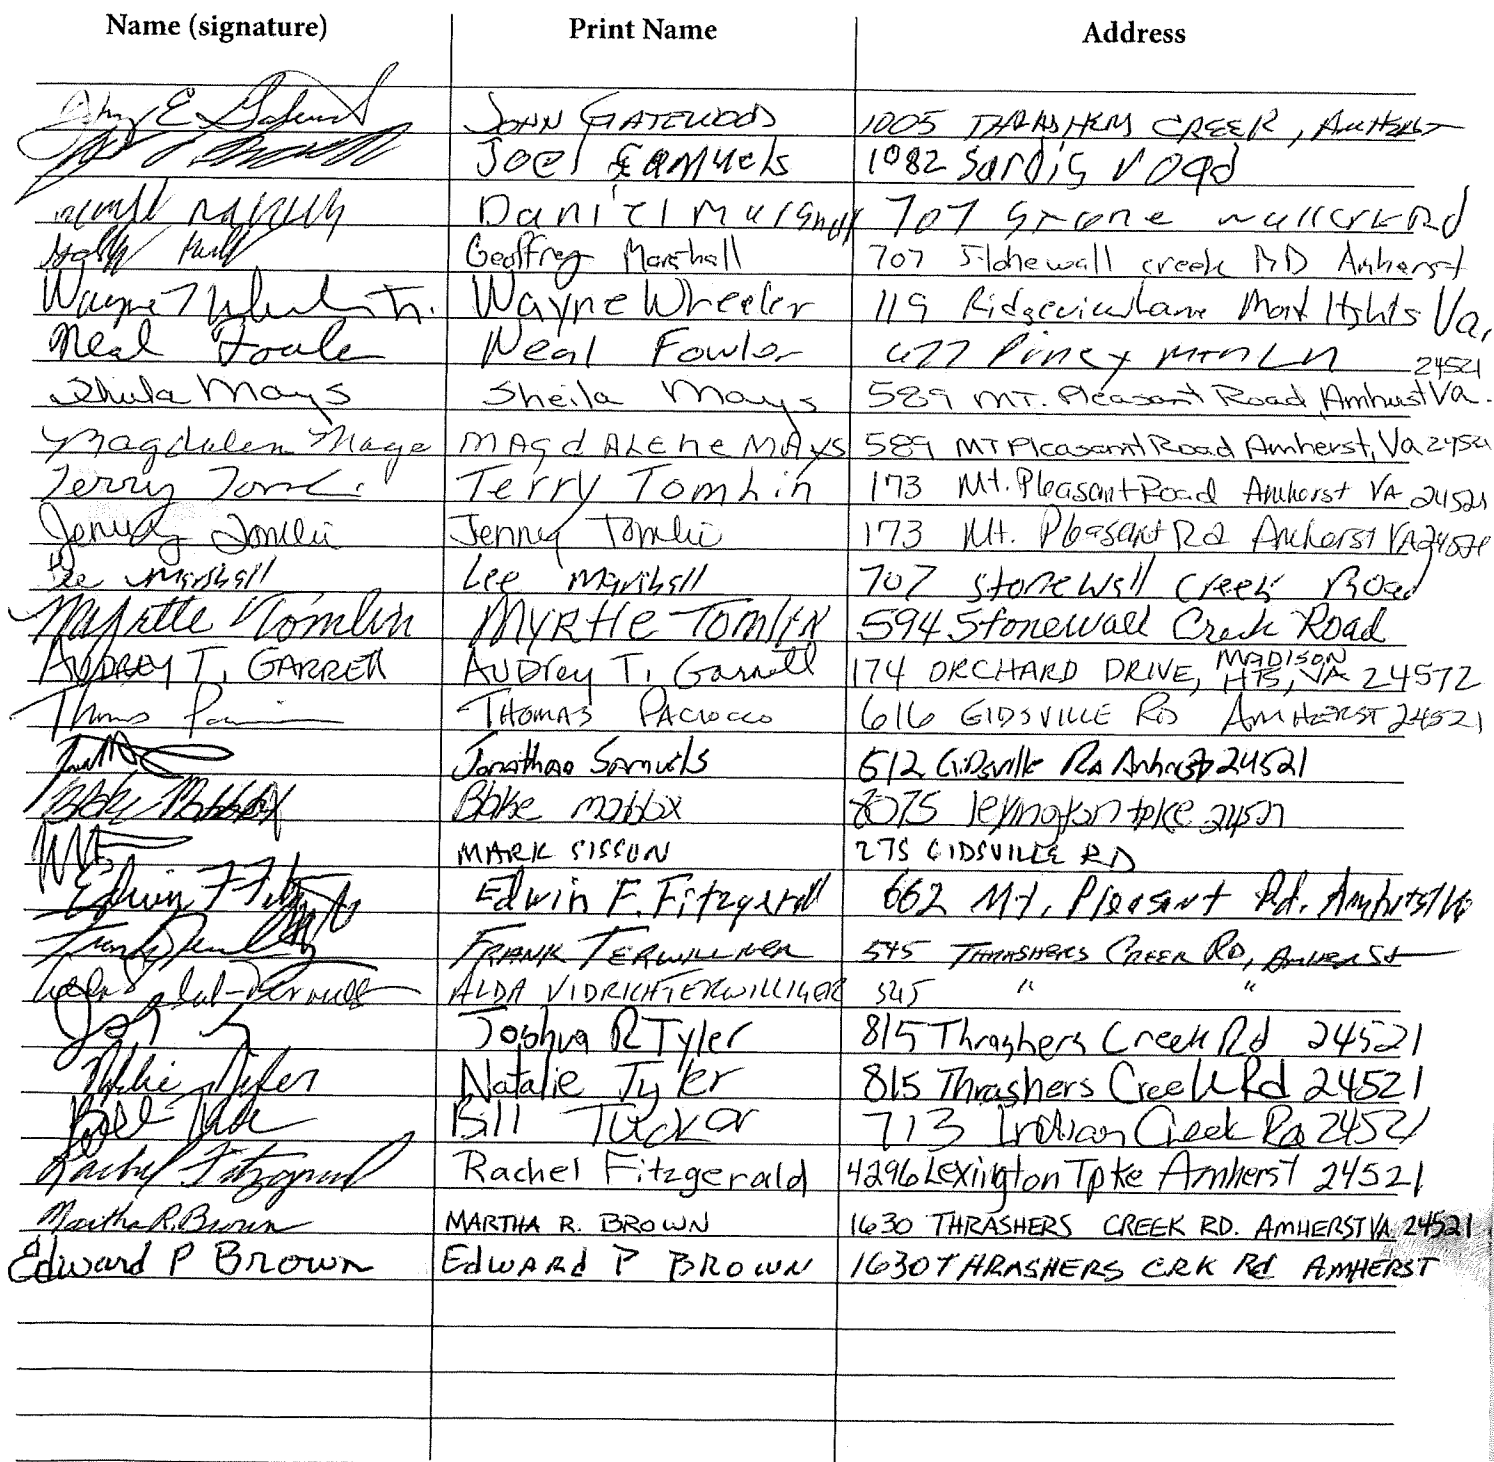 Name (signature) Print Name Address
JOHN GATEWOOD 1005 THRASHERS CREEK, AMHERST
Joel Samuels 1082 Sardis road
Daniel Marshall 707 Stone wall crk Rd
Geoffrey Marshall 707 Stonewall creek RD Amherst
Wayne Wheeler Jr. Wayne Wheeler 119 Ridgeview Lane Mad Hghts Va,
Neal Fowler Neal Fowler 477 Piney MTN LN 24521
Sheila Mays Sheila Mays 589 MT. Pleasant Road Amherst Va.
Magdalene Mays MAgdALENE MAYS 589 MT Pleasant Road Amherst, Va 24521
Terry Tomlin Terry Tomlin 173 Mt. Pleasant Road Amherst VA 24521
Jenny Tomlin Jenny Tomlin 173 Mt. Pleasant Rd Amherst VA 24521
Lee Marshall Lee Marshall 707 Stonewall Creek Road
Myrtle Tomlin MYRtle TOMLIN 594 Stonewall Creek Road
AUDREY T. GARRETT AUDrey T. Garrett 174 ORCHARD DRIVE, MADISON HTS, VA 24572
THOMAS PACIOCCO 616 GIDSVILLE RD AMHERST 24521
Jonathan Samuels 612 Gidsville Rd Amherst 24521
Blake Mabbox Blake mabbox 8075 lexington tpke 24521
MARK SISSON 275 GIDSVILLE RD
Edwin F. Fitzgerald Edwin F. Fitzgerald 662 Mt. Pleasant Rd. Amherst Va
FRANK TERWILLIGER 545 THRASHERS CREEK RD, Amherst
ALDA VIDRICH TERWILLIGER 545 " "
Joshua R Tyler 815 Thrashers Creek Rd 24521
Natalie Tyler 815 Thrashers Creek Rd 24521
Bill Tucker Bill Tucker 713 Indian Creek Rd 24521
Rachel Fitzgerald Rachel Fitzgerald 4296 Lexington Tpke Amherst 24521
Martha R. Brown MARTHA R. BROWN 1630 THRASHERS CREEK RD. AMHERST VA. 24521
Edward P Brown EdWARd P BROWN 1630 THRASHERS CRK Rd AMHERST